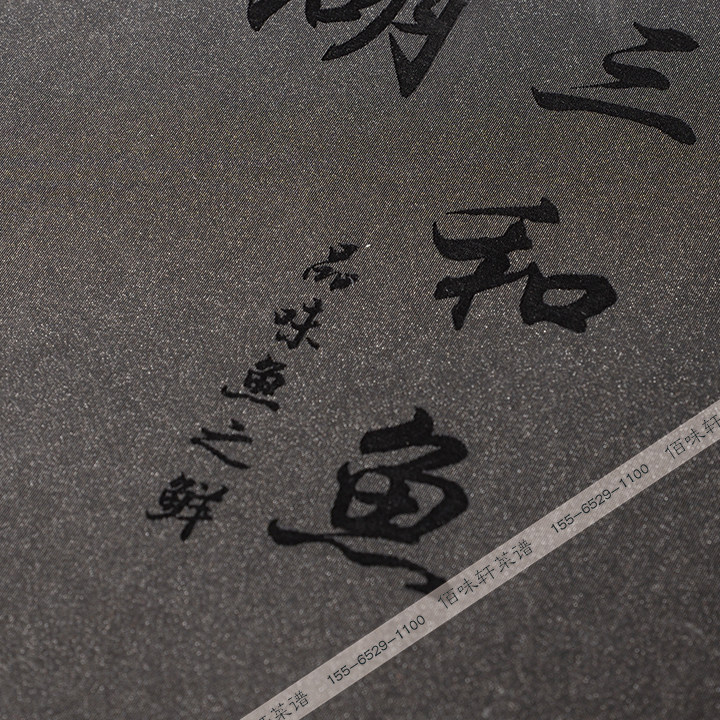 三和鱼
品味鱼之鲜
轩菜谱 155-6529-1100 佰味轩菜谱 155-6529-1100 佰味轩